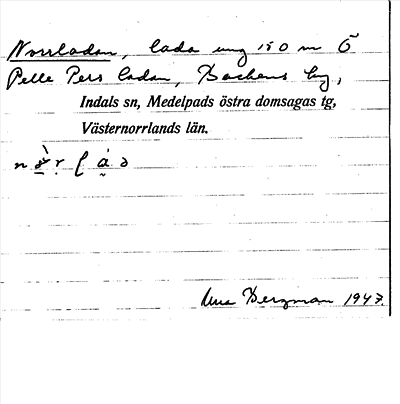 Norrladan, lada ung 150 m Ö
Pelle Pers ladan, Backens by,
Indals sn, Medelpads östra domsagas tg,
Västernorrlands län.
Bergman 1943.